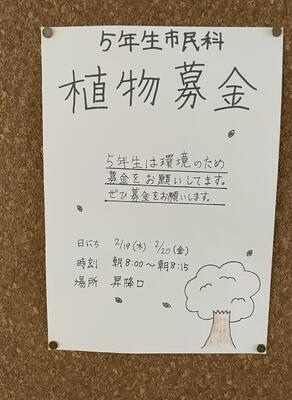 5年生市民科
植物募金
5年生は環境のため
募金をお願いしてます。
ぜひ募金をお願いします。
日にち 2/19(木) 2/20(金)
時刻 朝8:00〜朝8:15
場所 昇降口